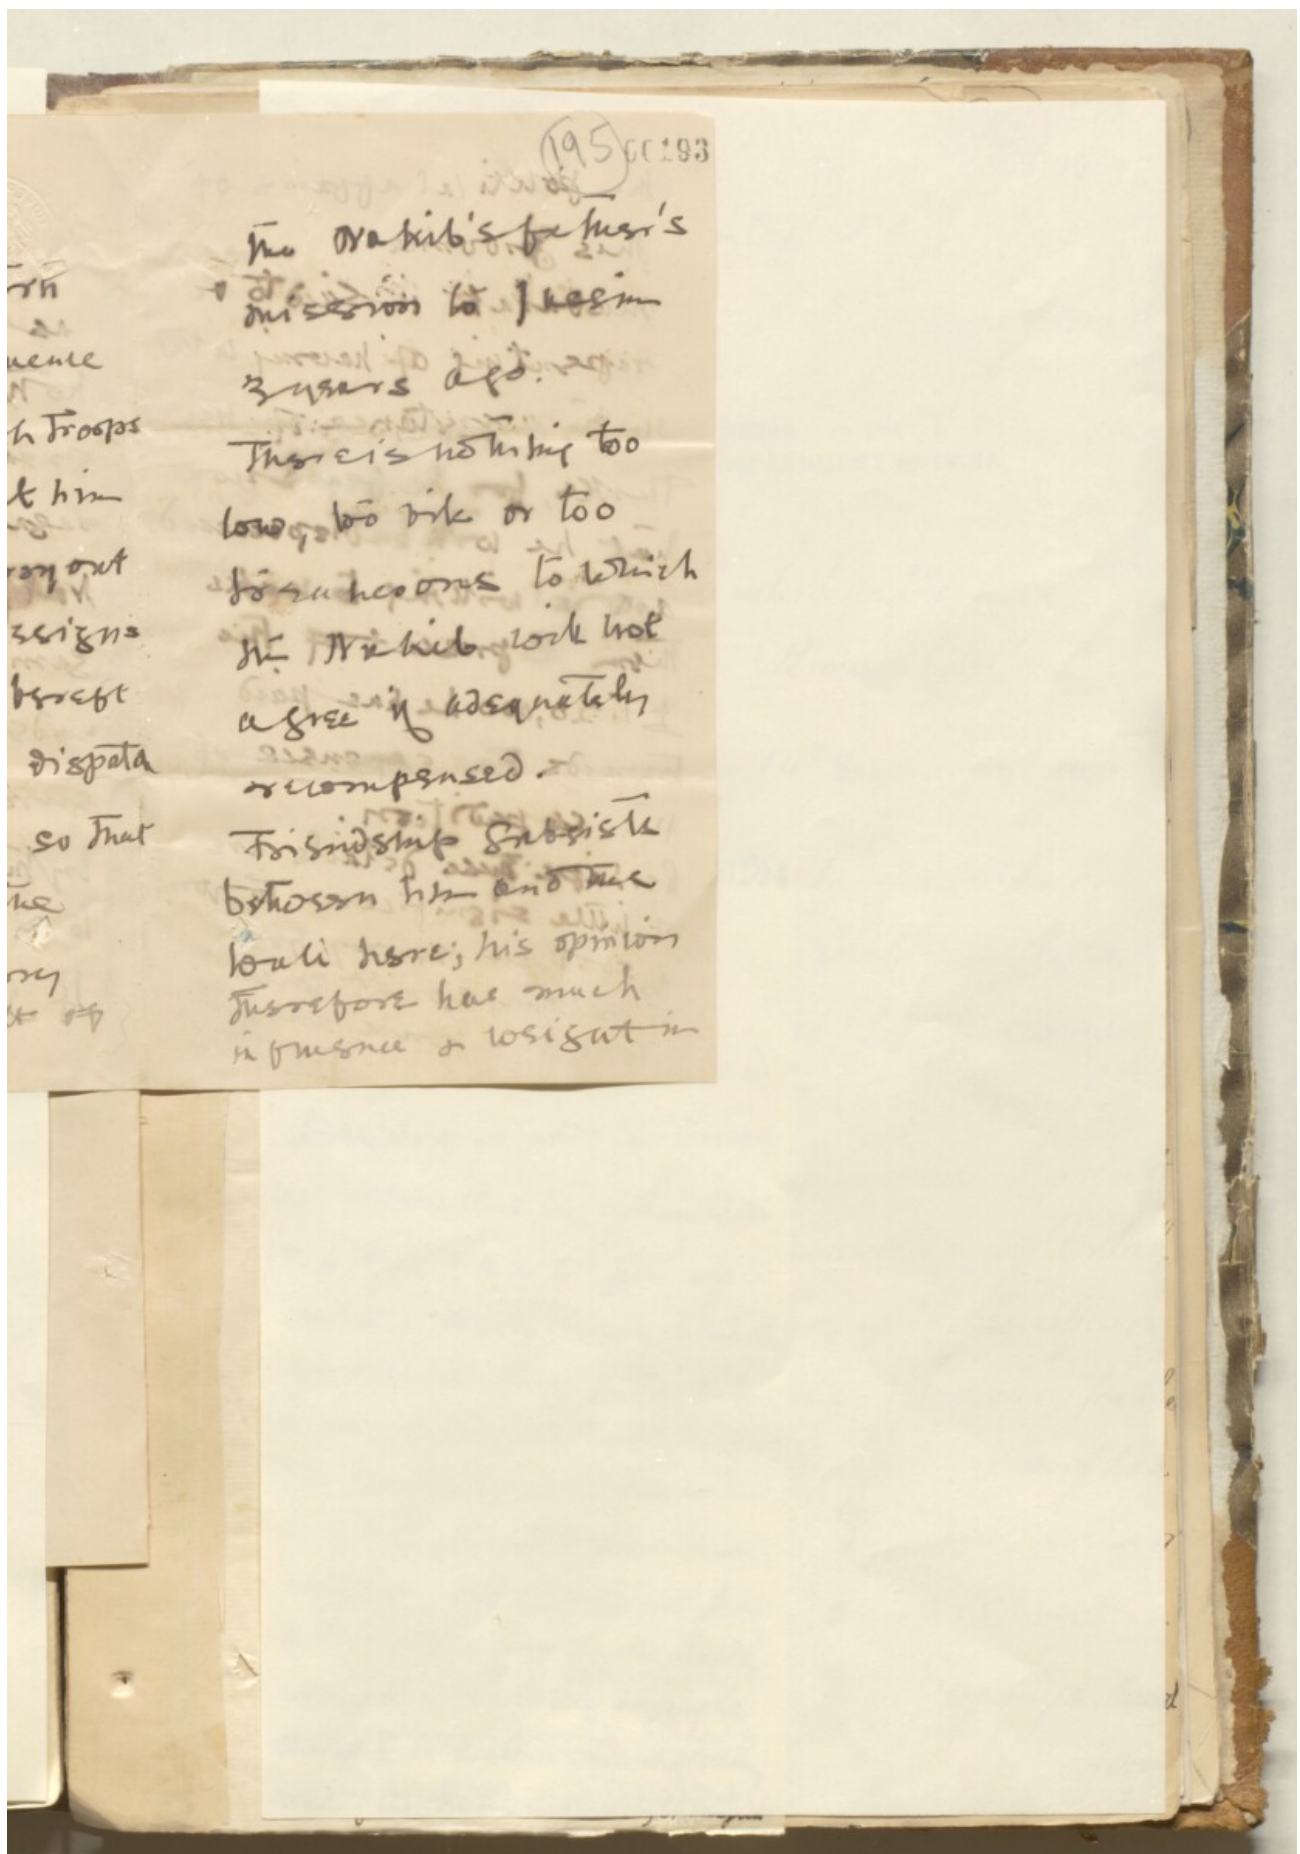 195 00193
The Nakib's father's
mission to Nesim
3 years ago.
There is nothing too
low, too vile or too
treacherous to which
the Nakib will not
agree if adequately
recompensed.
Friendship subsists
between him and the
Wali here; his opinion
therefore has much
influence & weight in
h troops
t him
out
ssigns
bereft
dispatch
so that